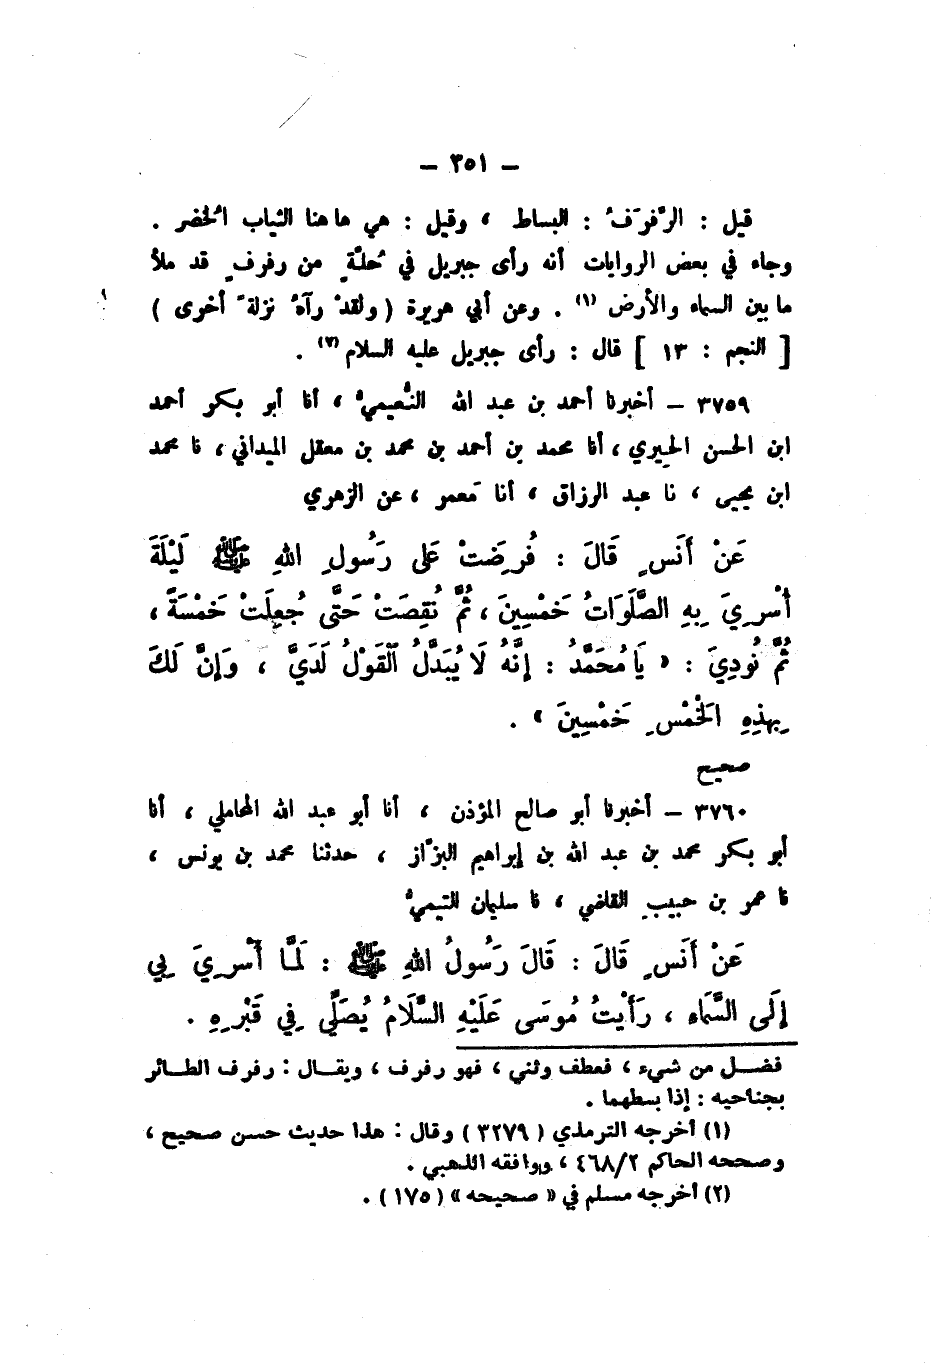 – ٣٥١ –
قيل : الرَّفرَفُ : البساط ، وقيل : هي هاهنا الثياب الخُضر .
وجاء في بعض الروايات أنه رأى جبريل في حُلَّةٍ من رفرفٍ قد ملأ
ما بين السماء والأرض (١) . وعن أبي هريرة ( ولقدْ رآهُ نزلةً أخرى )
[ النجم : ١٣ ] قال : رأى جبريل عليه السلام (٢) .
٣٧٥٩ – أخبرنا أحمد بن عبد الله النُّعيميُّ ، أنا أبو بكر أحمد
ابن الحسن الحِيري ، أنا محمد بن أحمد بن محمد بن معقل الميداني ، نا محمد
ابن يحيى ، نا عبد الرزاق ، أنا مَعمر ، عن الزهري
عَنْ أَنَسٍ قَالَ : فُرِضَتْ عَلَى رَسُولِ اللهِ ﷺ لَيْلَةَ
أُسْرِيَ بِهِ الصَّلَوَاتُ خَمْسِينَ ، ثُمَّ نُقِصَتْ حَتَّى جُعِلَتْ خَمْسَةً ،
ثُمَّ نُودِيَ : « يَا مُحَمَّدُ : إِنَّهُ لَا يُبَدَّلُ الْقَوْلُ لَدَيَّ ، وَإِنَّ لَكَ
بِهذِهِ الخَمْسِ خَمْسِينَ » .
صحيح
٣٧٦٠ – أخبرنا أبو صالح المؤذن ، أنا أبو عبد الله المحاملي ، أنا
أبو بكر محمد بن عبد الله بن إبراهيم البزَّاز ، حدثنا محمد بن يونس ،
نا عمر بن حبيب القاضي ، نا سليمان التيميُّ
عَنْ أَنَسٍ قَالَ : قَالَ رَسُولُ اللهِ ﷺ : لَمَّا أُسْرِيَ بِي
إِلَى السَّمَاءِ ، رَأَيْتُ مُوسَى عَلَيْهِ السَّلَامُ يُصَلِّي فِي قَبْرِهِ .
فضل من شيء ، فعطف وثني ، فهو رفرف ، ويقال : رفرف الطائر
بجناحيه : إذا بسطهما .
(١) أخرجه الترمذي ( ٣٢٧٩ ) وقال : هذا حديث حسن صحيح ،
وصححه الحاكم ٤٦٨/٢ ، ووافقه الذهبي .
(٢) أخرجه مسلم في « صحيحه » ( ١٧٥ ) .